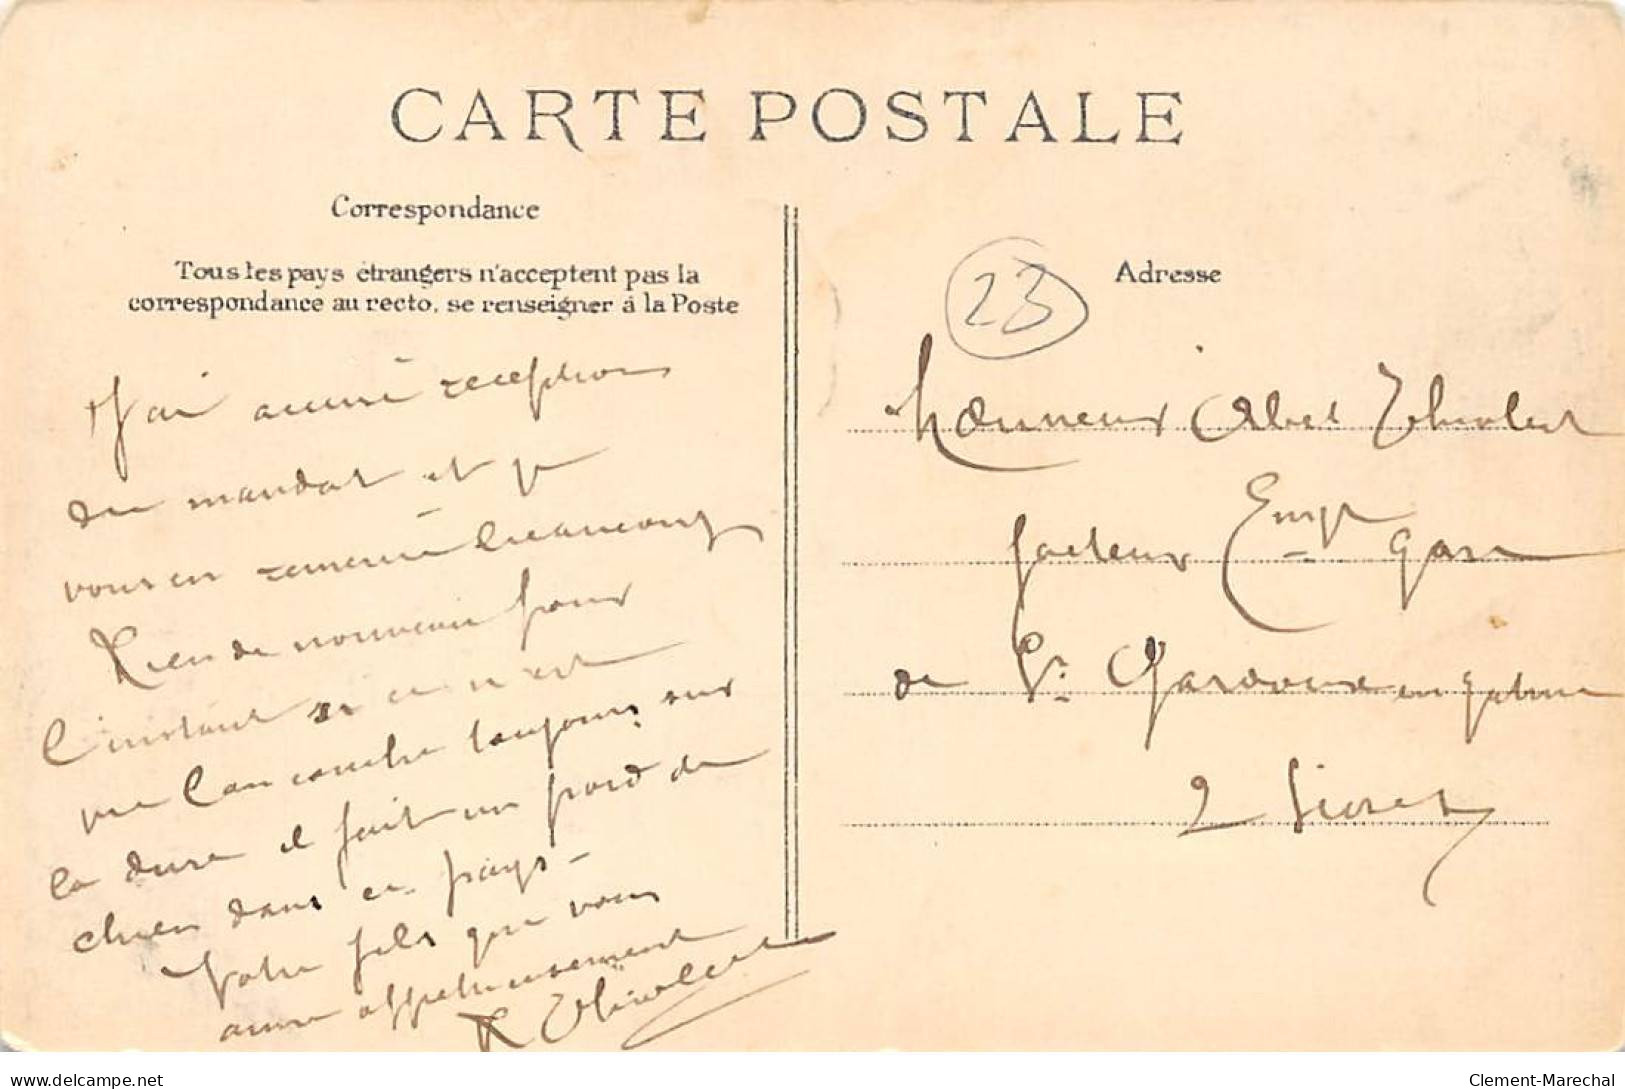 CARTE POSTALE
Correspondance
Tous les pays étrangers n'acceptent pas la
correspondance au recto, se renseigner à la Poste
J'ai accusé réception
du mandat et je
vous en remercie beaucoup
Rien de nouveau pour
l'instant si ce n'est
que l'on couche toujours sur
la dure il fait un froid de
chien dans ce pays -
Votre fils que vous
aime affectueusement
R Thiolet
23
Adresse
Monsieur Abel
facteur Emp Gare
de St Gardoux en Gatine
2 Sèvres
Clement-Marechal
delcampe.net